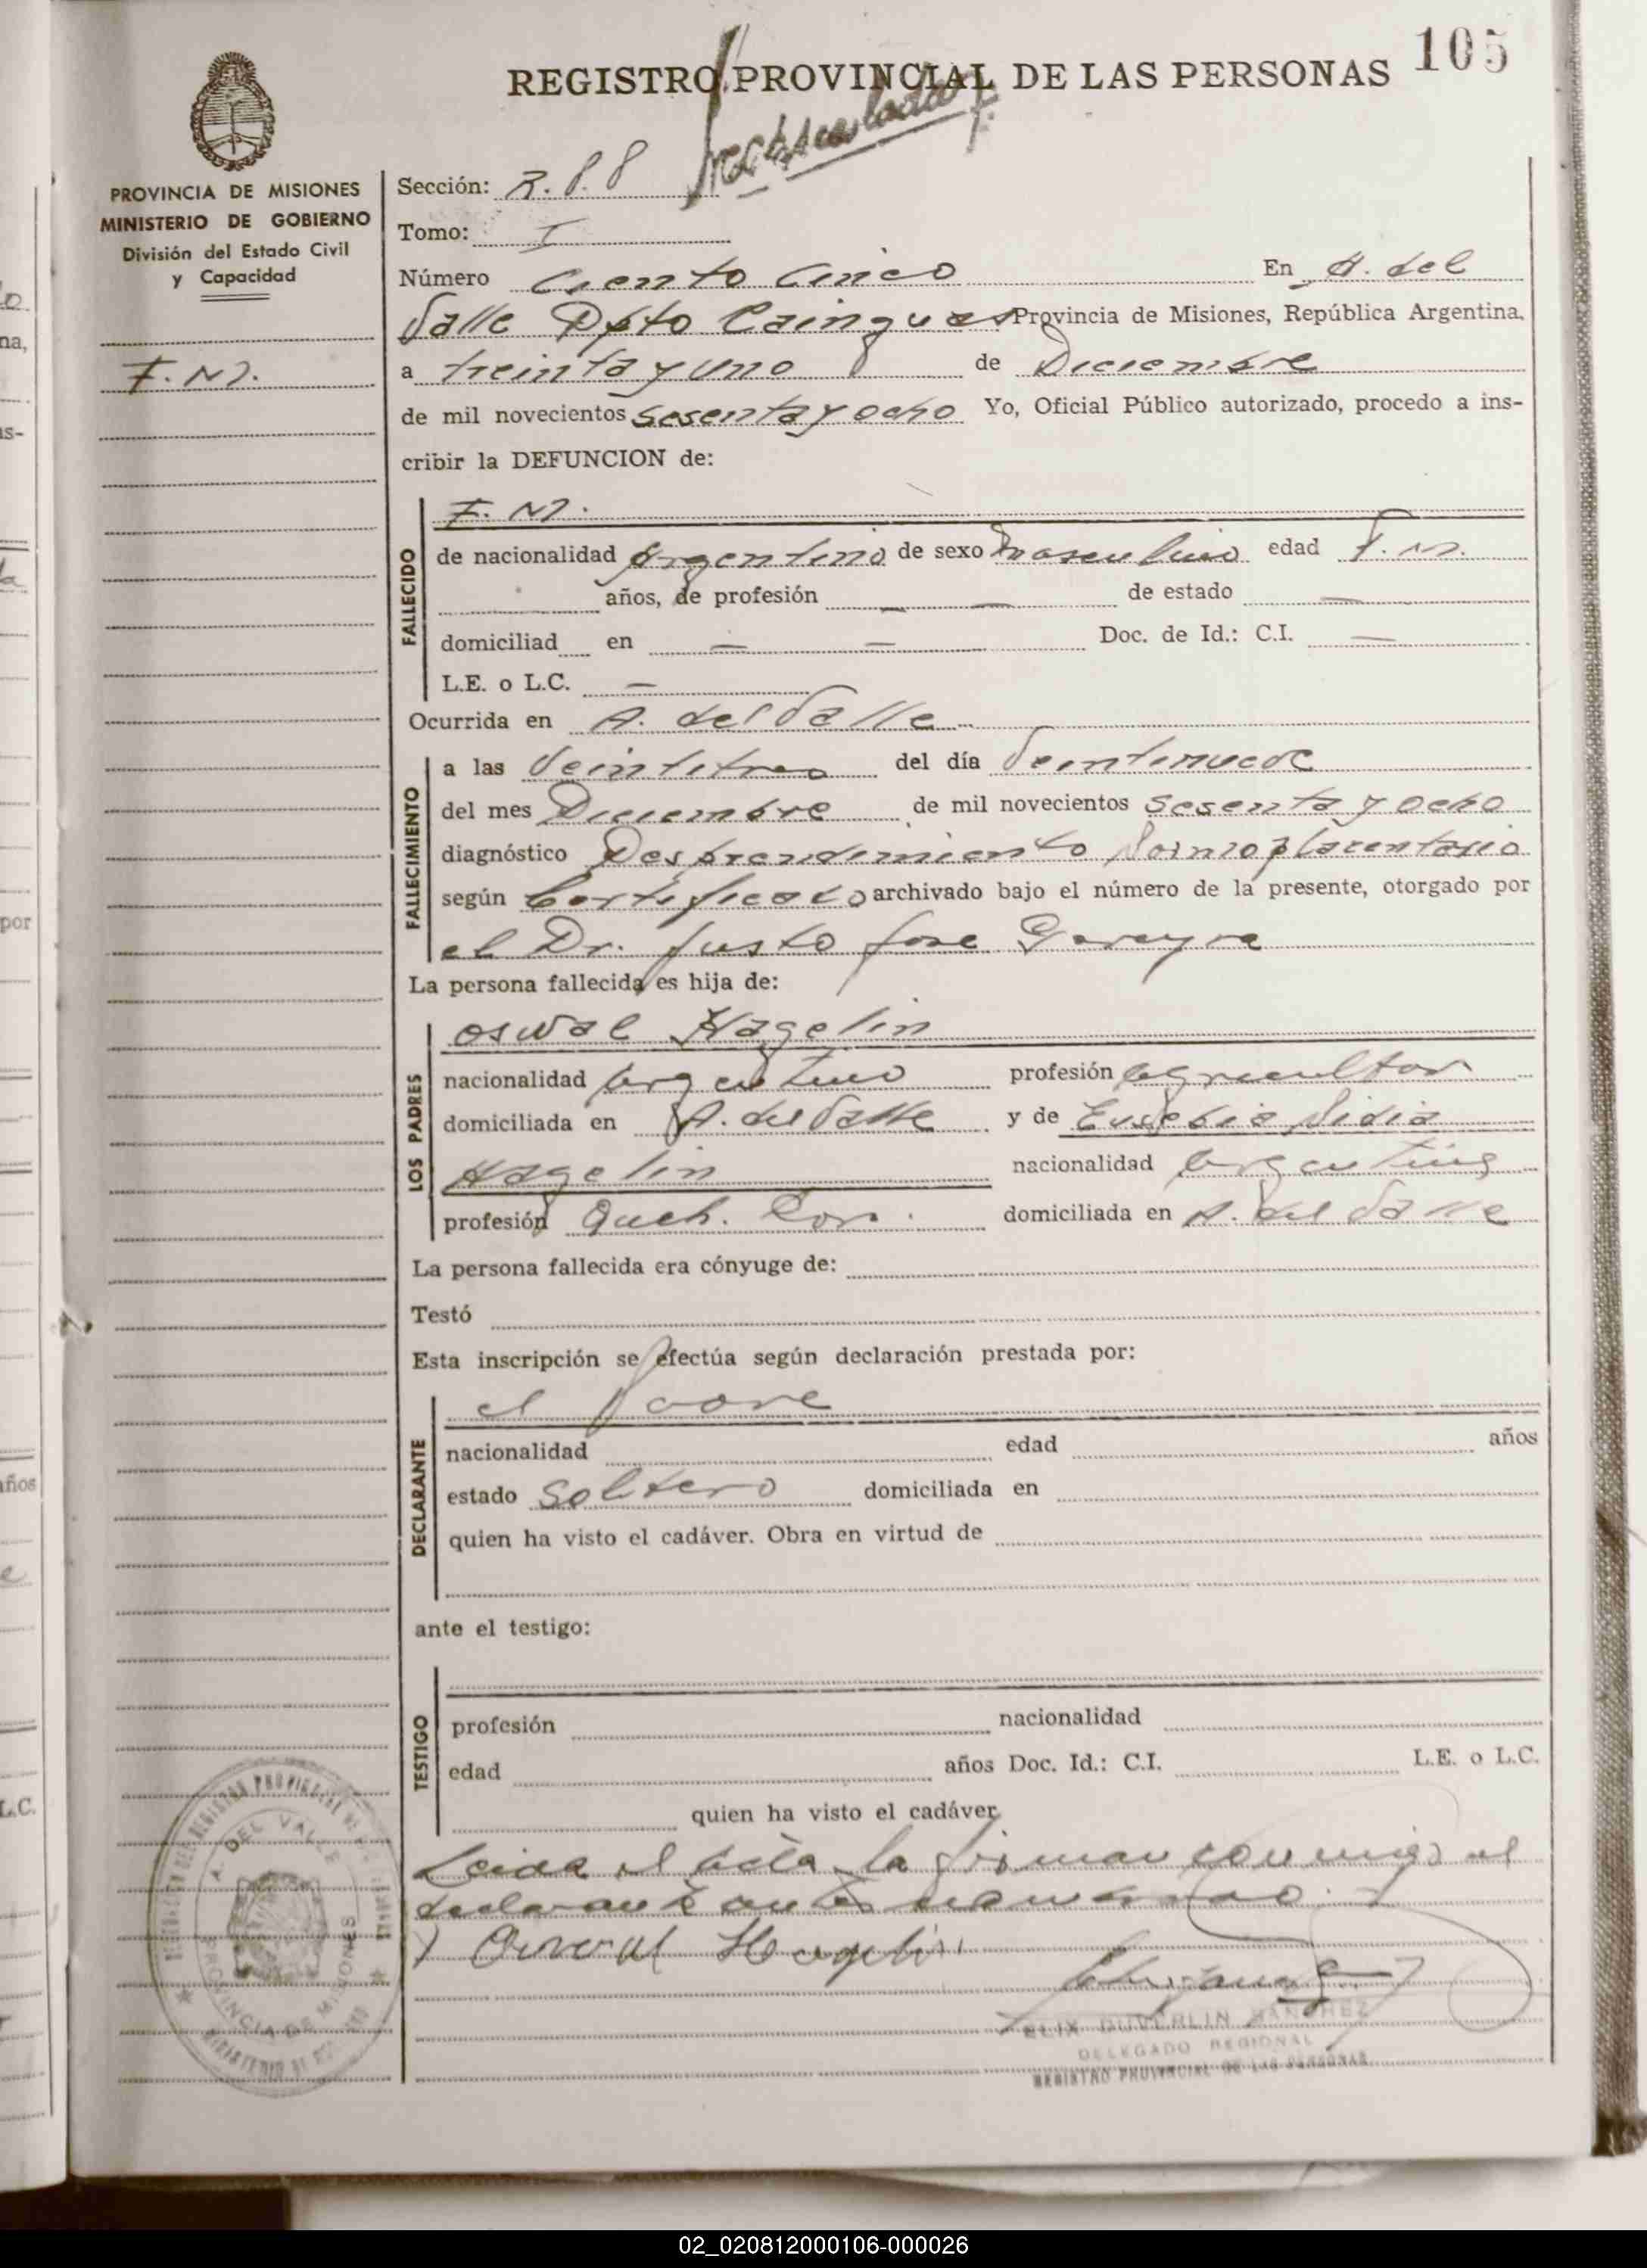 105
REGISTRO PROVINCIAL DE LAS PERSONAS
PROVINCIA DE MISIONES
MINISTERIO DE GOBIERNO
División del Estado Civil
y Capacidad
F. N.
Sección:
Tomo: I
Número Ciento Cinco En A. del
Valle Dpto Cainguas Provincia de Misiones, República Argentina,
a treinta y uno de Diciembre
de mil novecientos sesenta y ocho Yo, Oficial Público autorizado, procedo a ins-
cribir la DEFUNCION de:
FALLECIDO
F. N.
de nacionalidad Argentino de sexo masculino edad F. N.
años, de profesión — — de estado —
domiciliad en — — Doc. de Id.: C.I. —
L.E. o L.C. —
Ocurrida en A. del Valle
FALLECIMIENTO
a las Veintitres del día Veintinueve
del mes Diciembre de mil novecientos sesenta y ocho
diagnóstico Desprendimiento placentario
según Certificado archivado bajo el número de la presente, otorgado por
el Dr. Justo Jose Gareyra
La persona fallecida es hija de:
LOS PADRES
Oswal Hagelin
nacionalidad Argentino profesión Agricultor
domiciliada en A. del Valle y de Eusebia Lidia
Hagelin nacionalidad Argentina
profesión Queh. domiciliada en A. del Valle
La persona fallecida era cónyuge de:
Testó
Esta inscripción se efectúa según declaración prestada por:
DECLARANTE
el Padre
nacionalidad edad años
estado Soltero domiciliada en
quien ha visto el cadáver. Obra en virtud de
ante el testigo:
TESTIGO
profesión nacionalidad
edad años Doc. Id.: C.I. L.E. o L.C.
quien ha visto el cadáver
Leida el acta la firman conmigo el
declarante
Oswal Hagelin
A. DEL VALLE
PROVINCIA DE MISIONES
FELIX SANCHEZ
DELEGADO REGIONAL
REGISTRO PROVINCIAL DE LAS PERSONAS
02_020812000106-000026